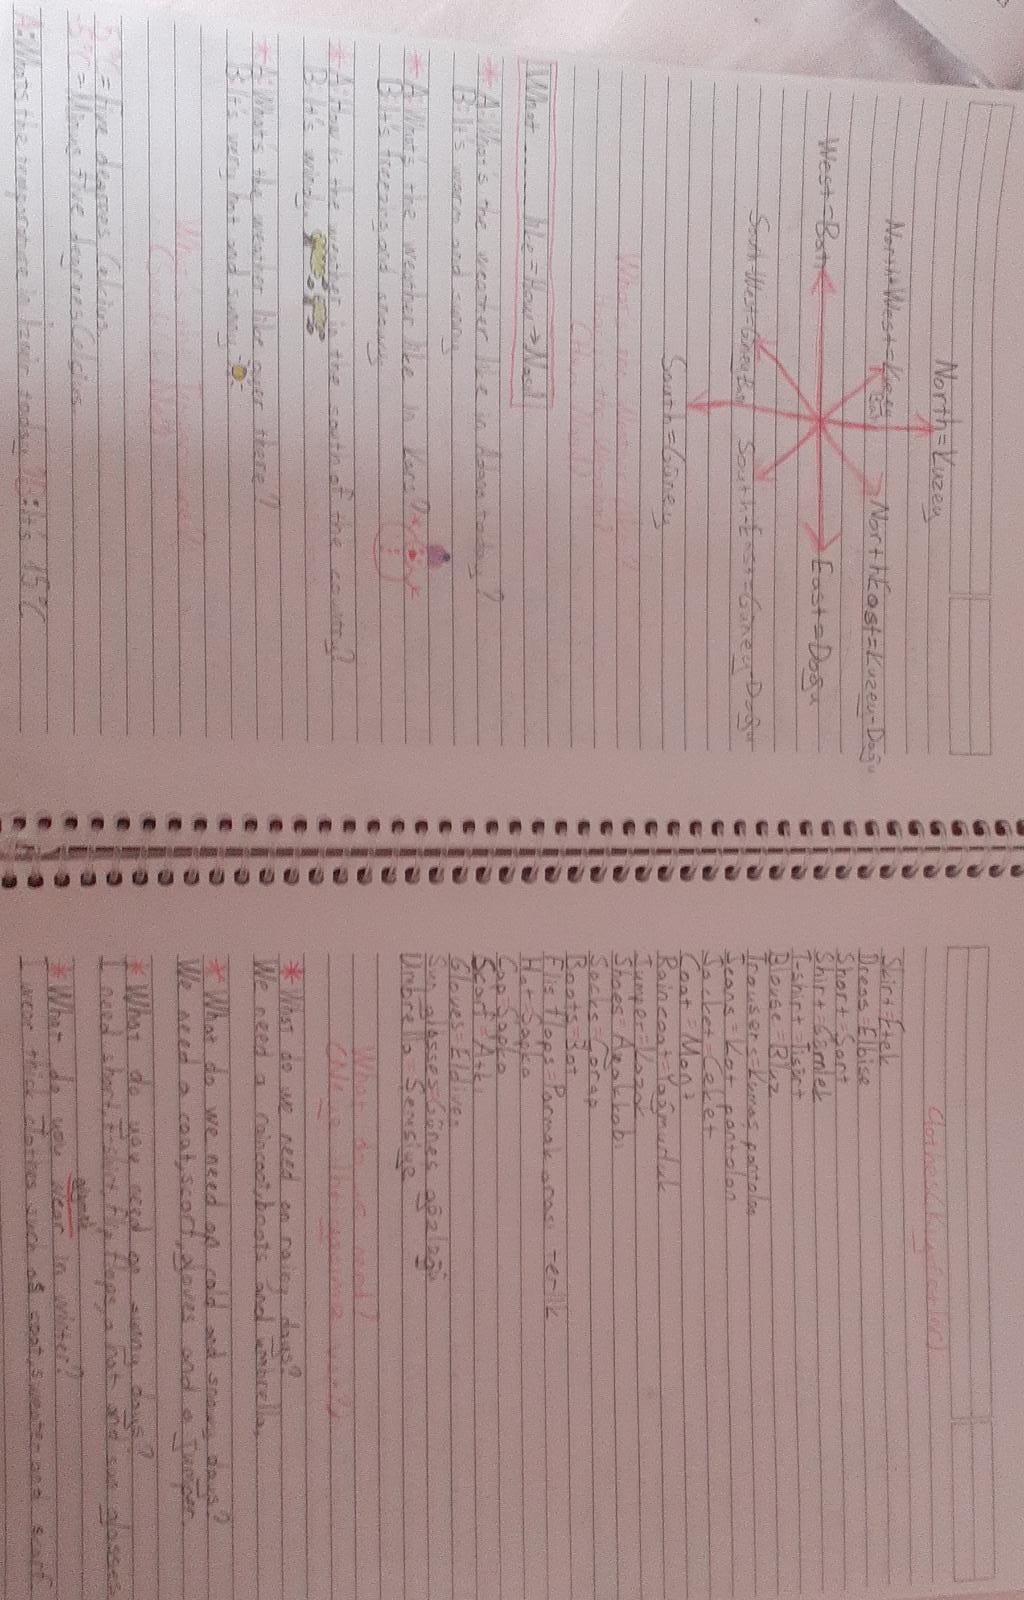 North=Kuzey
North+West=Kuzey
Batı
NorthEast=Kuzey-Doğu
West=Batı
East=Doğu
South-West=Güney Batı
South-East=Güney-Doğu
South=Güney
What ........ like=How→Nasıl
* A:What's the weather like in Adana today?
B:It's warm and sunny
* A:What's the weather like in Kars?
B:It's freezing and snowy
* A:How is the weather in the south of the country?
B:It's windy
* A:What's the weather like over there?
B:It's very hot and sunny
5°C=Five degrees Celcius
-5°C=Minus five degrees Celcius
A:What's the temperature in İzmir today? B:It's 15°C
Clothes(Kıyafetler)
Skirt=Etek
Dress=Elbise
Short=Şort
Shirt=Gömlek
T-shirt=Tişört
Blouse=Bluz
Trousers=Kumaş pantolon
Jeans=Kot pantolon
Jacket=Ceket
Coat=Mont
Raincoat=Yağmurluk
Jumper=Kazak
Shoes=Ayakkabı
Socks=Çorap
Boots=Bot
Flis flops=Parmak arası terlik
Hat=Şapka
Cap=Şapka
Scarf=Atkı
Gloves=Eldiven
Sun glasses=Güneş gözlüğü
Umbrella=Şemsiye
What do we need?
* What do we need on rainy days?
We need a raincoat,boots and umbrella.
* What do we need on cold and snowy days?
We need a coat,scarf,gloves and a Jumper
* What do you need on sunny days?
I need short,t-shirt,flip flops,a hat and sun glasses
* What do you wear in winter?
I wear thick clothes such as coat,sweater and scarf